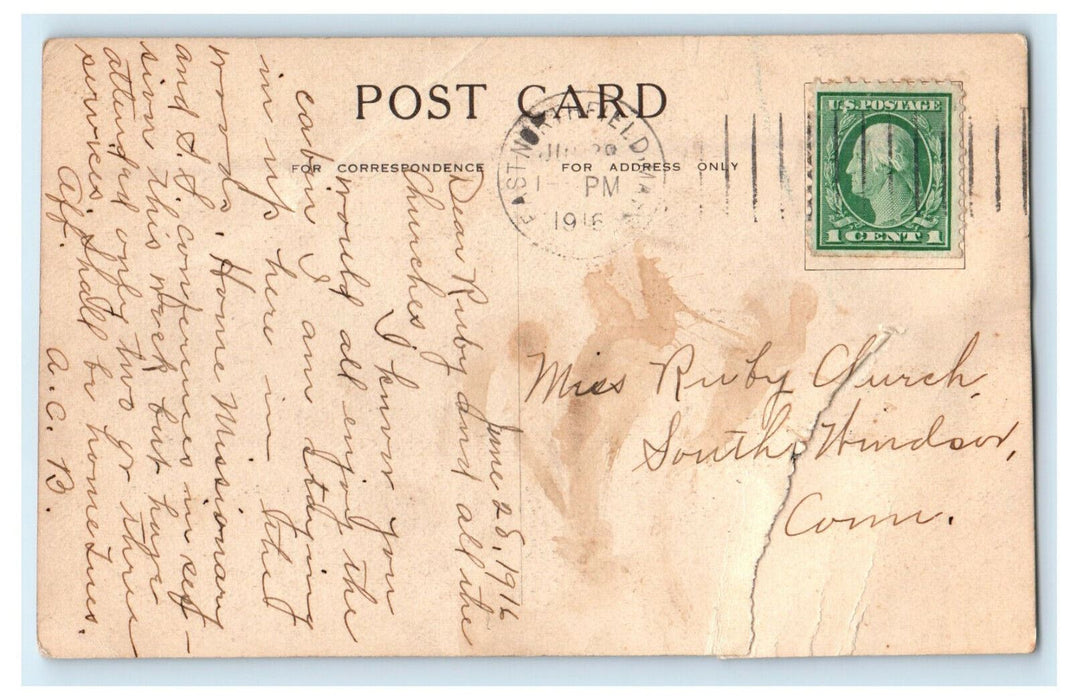 POST CARD
FOR CORRESPONDENCE
FOR ADDRESS ONLY
EAST NORTHFIELD, MASS.
JUN 29
1- PM
1916
U.S. POSTAGE
1 CENT 1
June 28, 1916
Dear Ruby and all the
Churches,
I know you
would all enjoy the
cabin I am staying
in up here in the
woods. Home Missionary
and S.S. conferences in ses-
sion this week but have
attended only two or three
services. Shall be home Tues.
Aff.
A. C. B.
Miss Ruby Church,
South Windsor,
Conn.